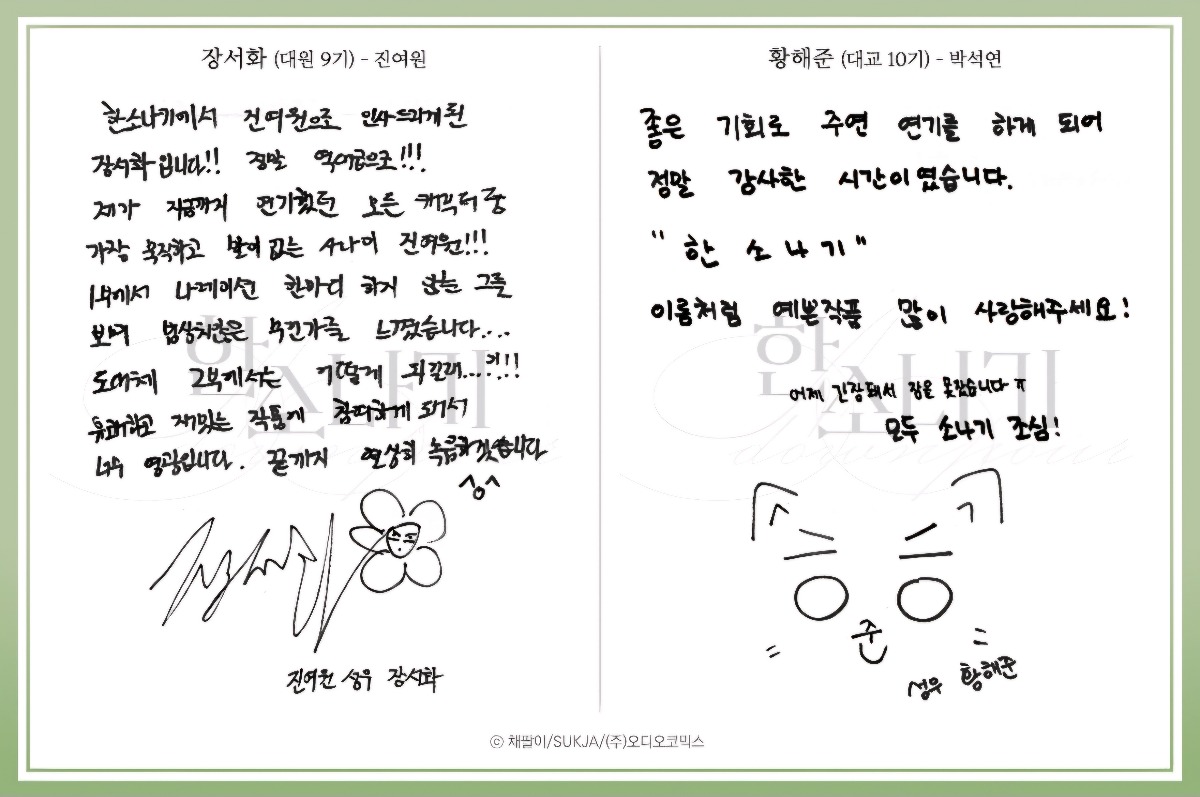 장서화 (대원 9기) - 진여원
한소나기에서 진여원으로 인사드리게된
장서화입니다!! 정말 역대급으로!!!
제가 지금까지 연기했던 모든 캐릭터 중
가장 묵직하고 말이 없는 사나이 진여원!!!
1부에서 나레이션 한마디 하지 않는 그를
보며 범상치않은 무언가를 느꼈습니다...
도대체 2부에서는 어떻게 되길래...?!!!
유쾌하고 재밌는 작품에 참여하게 되어서
너무 영광입니다. 끝까지 열심히 녹음하겠습니다
^o^
진여원 성우 장서화
황해준 (대교 10기) - 박석연
좋은 기회로 주연 연기를 하게 되어
정말 감사한 시간이였습니다.
"한 소 나 기"
이름처럼 예쁜작품 많이 사랑해주세요!
어제 긴장돼서 잠을 못잤습니다 ㅠ
모두 소나기 조심!
준
성우 황해준
한소나기
ⓒ 채팔이/SUKJA/(주)오디오코믹스